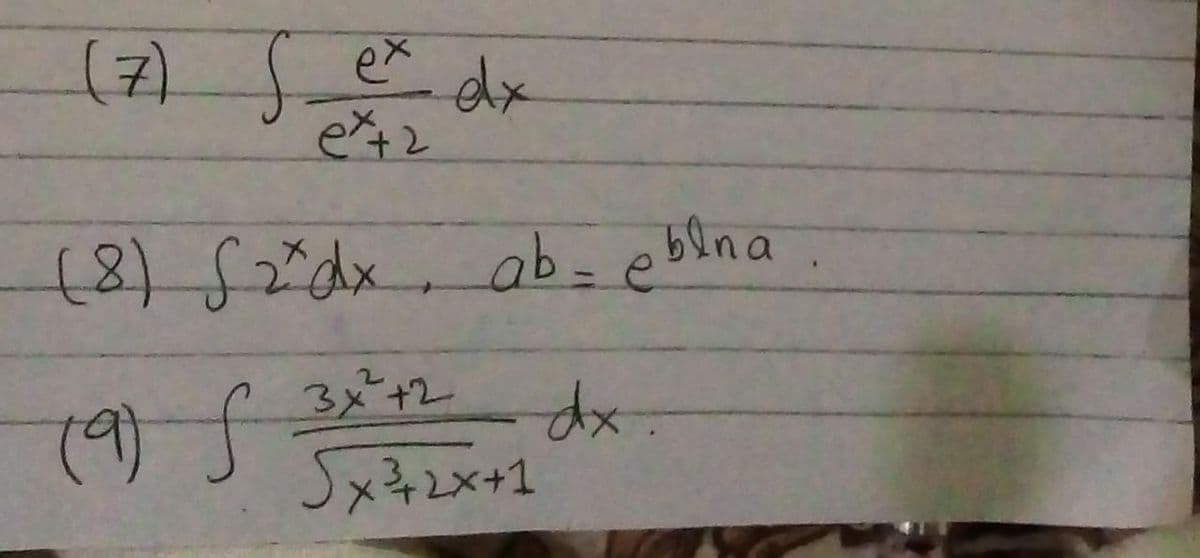 (7) ∫ eˣ/(eˣ+2) dx
(8) ∫2ˣdx, ab = e^(blna).
(9) ∫ (3x²+2)/√(x³+2x+1) dx.